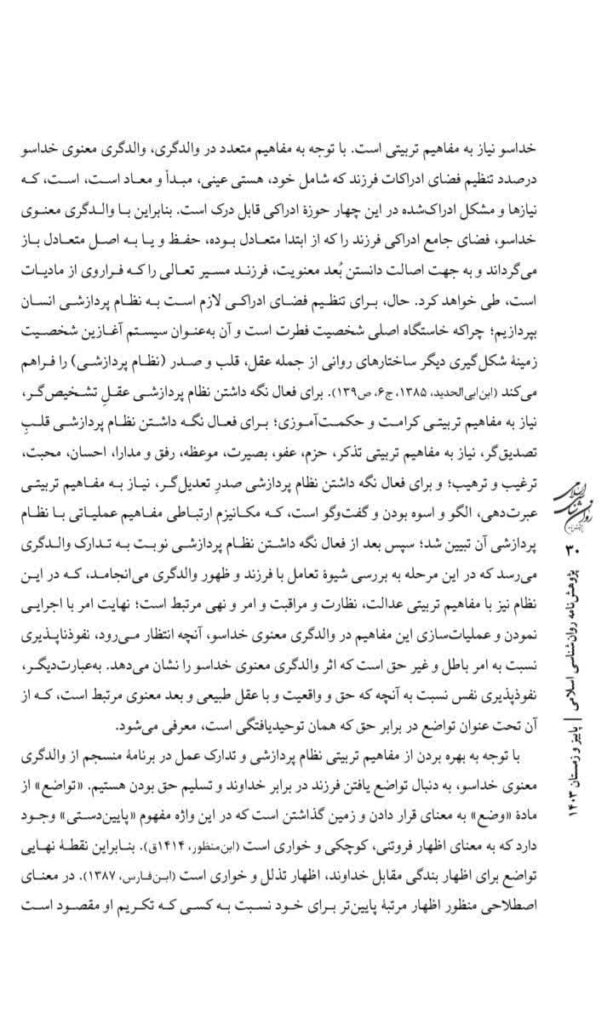 خداسو نیاز به مفاهیم تربیتی است. با توجه به مفاهیم متعدد در والدگری، والدگری معنوی خداسو
درصدد تنظیم فضای ادراکات فرزند که شامل خود، هستی عینی، مبدأ و معاد است، است، که
نیازها و مشکل ادراک‌شده در این چهار حوزهٔ ادراکی قابل درک است. بنابراین با والدگری معنوی
خداسو، فضای جامع ادراکی فرزند را که از ابتدا متعادل بوده، حفظ و یا به اصل متعادل باز
می‌گرداند و به جهت اصالت دانستن بُعد معنویت، فرزند مسیر تعالی را که فراروی از مادیات
است، طی خواهد کرد. حال، برای تنظیم فضای ادراکی لازم است به نظام پردازشی انسان
بپردازیم؛ چراکه خاستگاه اصلی شخصیت فطرت است و آن به‌عنوان سیستم آغازین شخصیت
زمینهٔ شکل‌گیری دیگر ساختارهای روانی از جمله عقل، قلب و صدر (نظام پردازشی) را فراهم
می‌کند (ابن‌ابی‌الحدید، ۱۳۸۵، ج۶، ص۱۳۹). برای فعال نگه داشتن نظام پردازشی عقلِ تشخیص‌گر،
نیاز به مفاهیم تربیتی کرامت و حکمت‌آموزی؛ برای فعال نگه داشتن نظام پردازشی قلبِ
تصدیق‌گر، نیاز به مفاهیم تربیتی تذکر، حزم، عفو، بصیرت، موعظه، رفق و مدارا، احسان، محبت،
ترغیب و ترهیب؛ و برای فعال نگه داشتن نظام پردازشی صدرِ تعدیل‌گر، نیاز به مفاهیم تربیتی
عبرت‌دهی، الگو و اسوه بودن و گفت‌وگو است، که مکانیزم ارتباطی مفاهیم عملیاتی با نظام
پردازشی آن تبیین شد؛ سپس بعد از فعال نگه داشتن نظام پردازشی نوبت به تدارک والدگری
می‌رسد که در این مرحله به بررسی شیوهٔ تعامل با فرزند و ظهور والدگری می‌انجامد، که در این
نظام نیز با مفاهیم تربیتی عدالت، نظارت و مراقبت و امر و نهی مرتبط است؛ نهایت امر با اجرایی
نمودن و عملیات‌سازی این مفاهیم در والدگری معنوی خداسو، آنچه انتظار می‌رود، نفوذناپذیری
نسبت به امر باطل و غیر حق است که اثر والدگری معنوی خداسو را نشان می‌دهد. به‌عبارت‌دیگر،
نفوذپذیری نفس نسبت به آنچه که حق و واقعیت و با عقل طبیعی و بعد معنوی مرتبط است، که از
آن تحت عنوان تواضع در برابر حق که همان توحیدیافتگی است، معرفی می‌شود.
با توجه به بهره بردن از مفاهیم تربیتی نظام پردازشی و تدارک عمل در برنامهٔ منسجم از والدگری
معنوی خداسو، به دنبال تواضع یافتن فرزند در برابر خداوند و تسلیم حق بودن هستیم. «تواضع» از
مادهٔ «وضع» به معنای قرار دادن و زمین گذاشتن است که در این واژه مفهوم «پایین‌دستی» وجود
دارد که به معنای اظهار فروتنی، کوچکی و خواری است (ابن‌منظور، ۱۴۱۴ق). بنابراین نقطهٔ نهایی
تواضع برای اظهار بندگی مقابل خداوند، اظهار تذلل و خواری است (ابن‌فارس، ۱۳۸۷). در معنای
اصطلاحی منظور اظهار مرتبهٔ پایین‌تر برای خود نسبت به کسی که تکریم او مقصود است
۳۰
پژوهش‌نامه روان‌شناسی اسلامی | پاییز و زمستان ۱۴۰۳